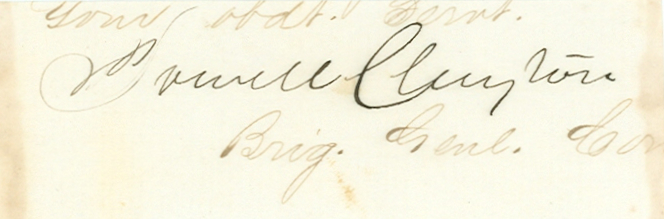 Your obdt. Servt.
Powell Clayton
Brig. Genl. Com